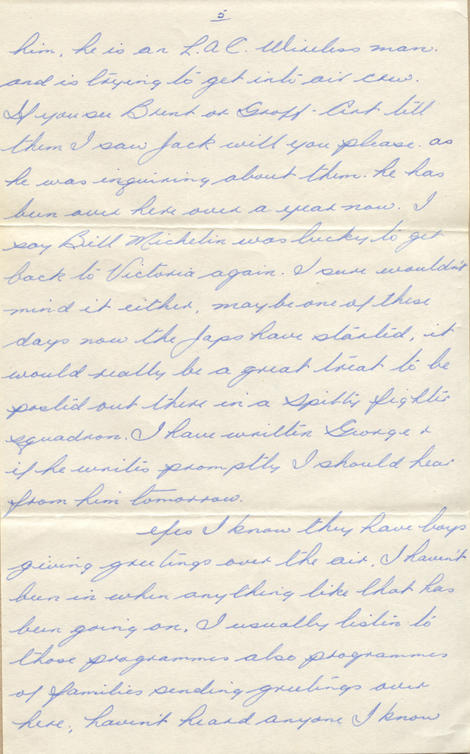 5
him, he is an L.A.C. Wireless man.
and is trying to get into air crew.
If you see Brent or Groff - Art tell
them I saw Jack will you please. as
he was inquiring about them. he has
been over here over a year now. I
say Bill Michelin was lucky to get
back to Victoria again. I sure wouldn't
mind it either, maybe one of these
days now the Japs have started, it
would really be a great treat to be
posted out there in a Spitty fighter
squadron. I have written George &
if he writes promptly I should hear
from him tomorrow.
Yes I know they have boys
giving greetings over the air. I haven't
been in when anything like that has
been going on. I usually listen to
those programmes also programmes
of families sending greetings over
here, haven't heard anyone I know